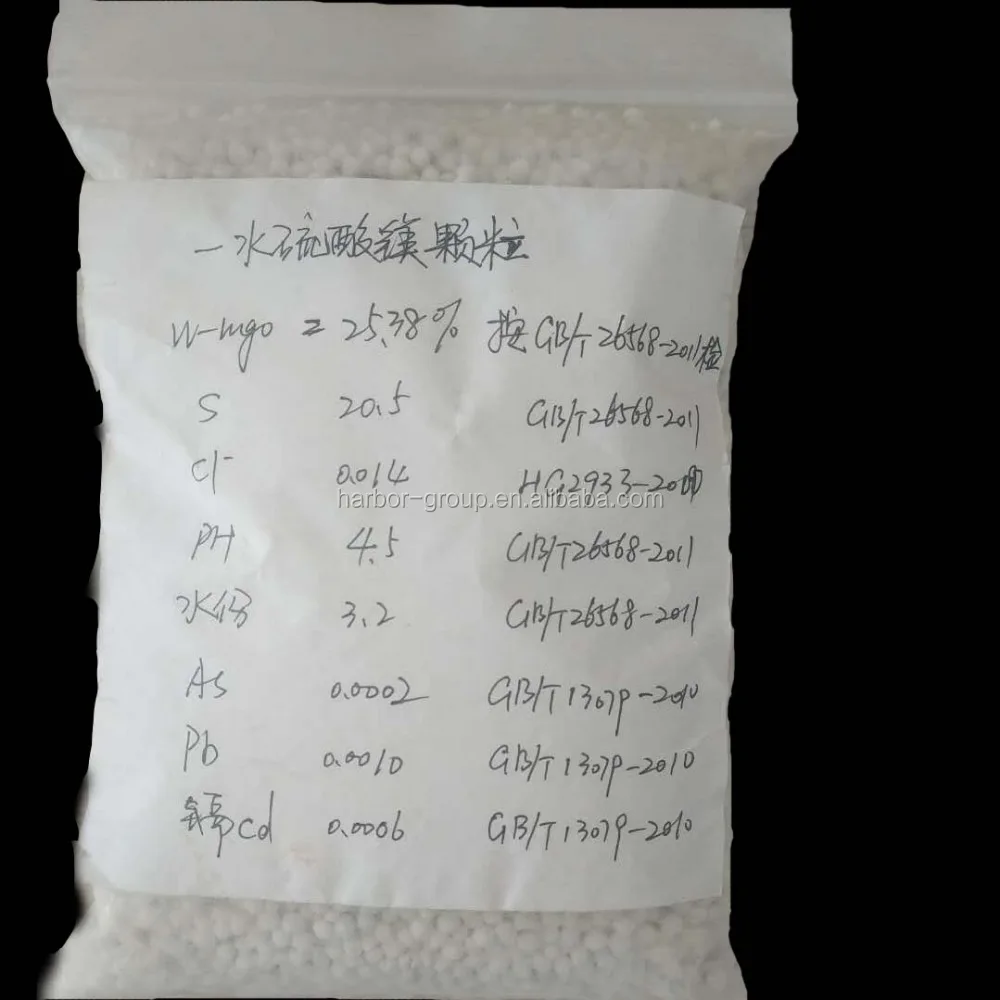 一水硫酸镁颗粒
W-mgo = 25.38% 按GB/T 26568-2011检
S 20.5 GB/T26568-2011
Cl⁻ 0.014 HG2933-2000
harbor-group.en.alibaba.com
PH 4.5 GB/T26568-2011
水份 3.2 GB/T26568-2011
As 0.0002 GB/T13079-2010
Pb 0.0010 GB/T13079-2010
镉cd 0.0006 GB/T13079-2010